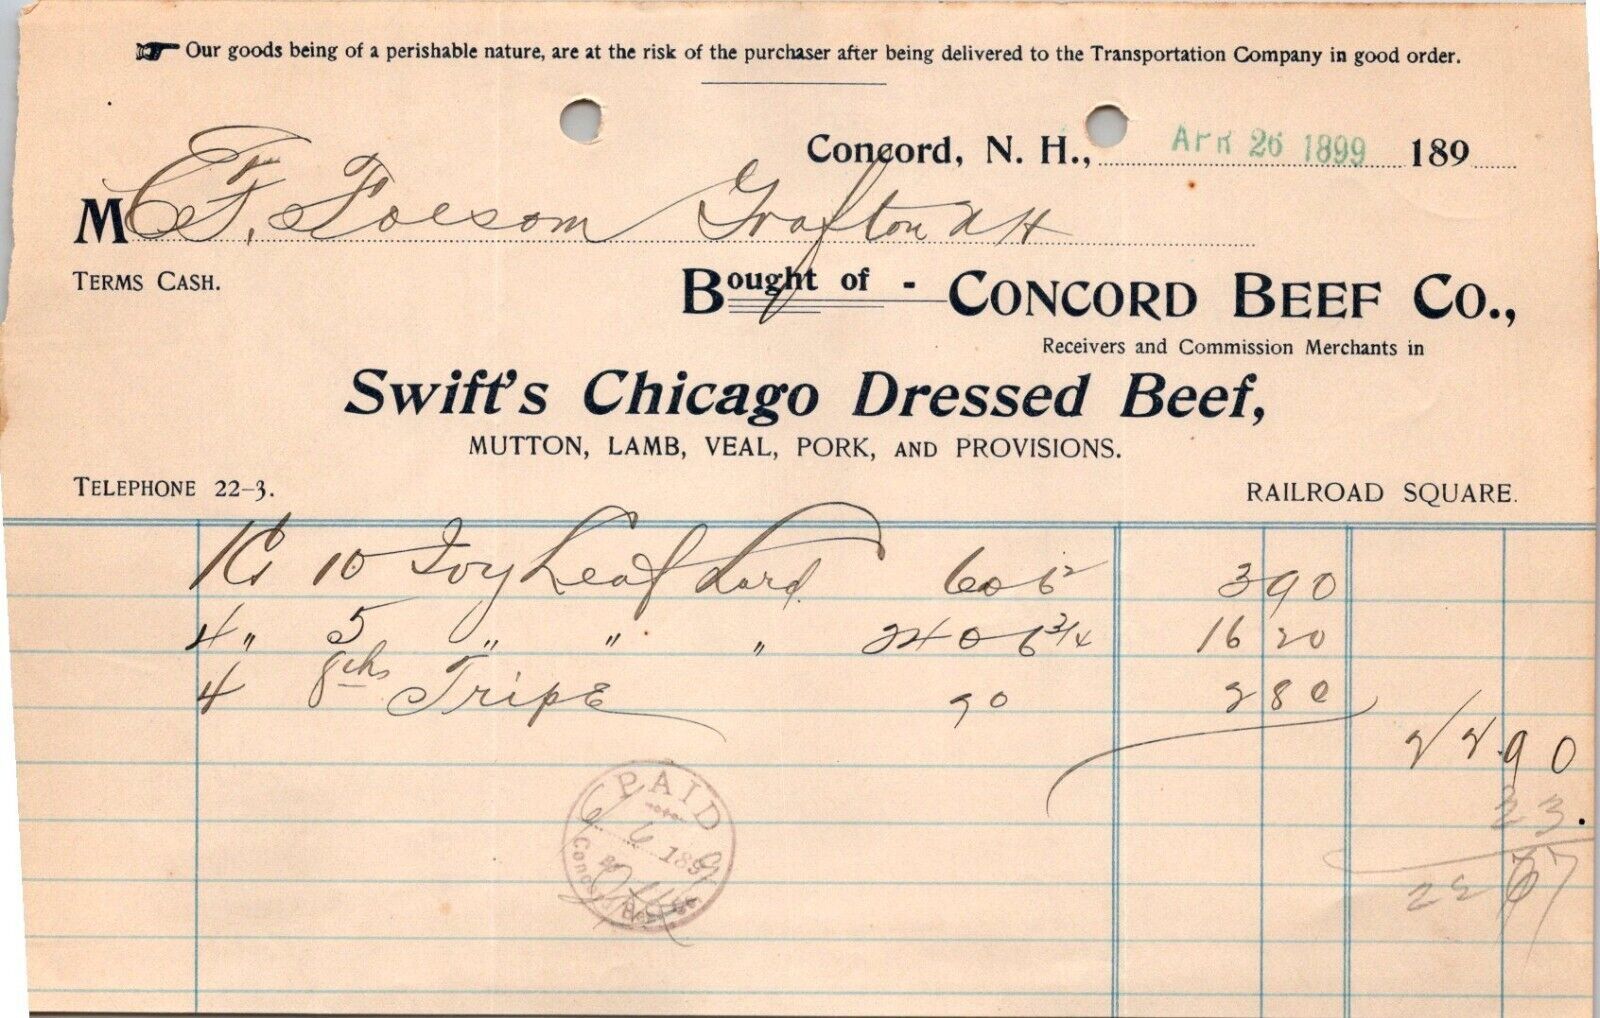 Our goods being of a perishable nature, are at the risk of the purchaser after being delivered to the Transportation Company in good order.
Concord, N. H., APR 26 1899 189
M C. F. Folsom Grafton NH
TERMS CASH.
Bought of - CONCORD BEEF CO.,
Receivers and Commission Merchants in
Swift's Chicago Dressed Beef,
MUTTON, LAMB, VEAL, PORK, AND PROVISIONS.
TELEPHONE 22-3.
RAILROAD SQUARE.
1 Cs 10 Ivy Leaf Lard 60 6½ 3 90
4 " 5 " " " 240 6 3/4 16 20
4 8ths Tripe 70 2 80
22.90
23.
22 67
PAID
6 1899
Concord Beef Co.